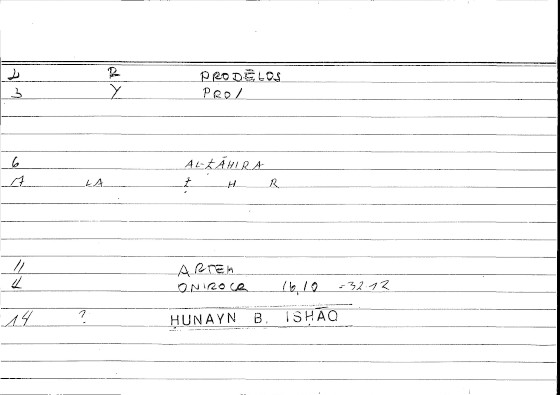 R PRODĒLOS
3 Y PRO/
6 AL-ṬĀHIRA
LA Ṭ H R
11 ARTEM
4 ONIROCR 16,10 =32 12
14 ? ḤUNAYN B. ISḤĀQ